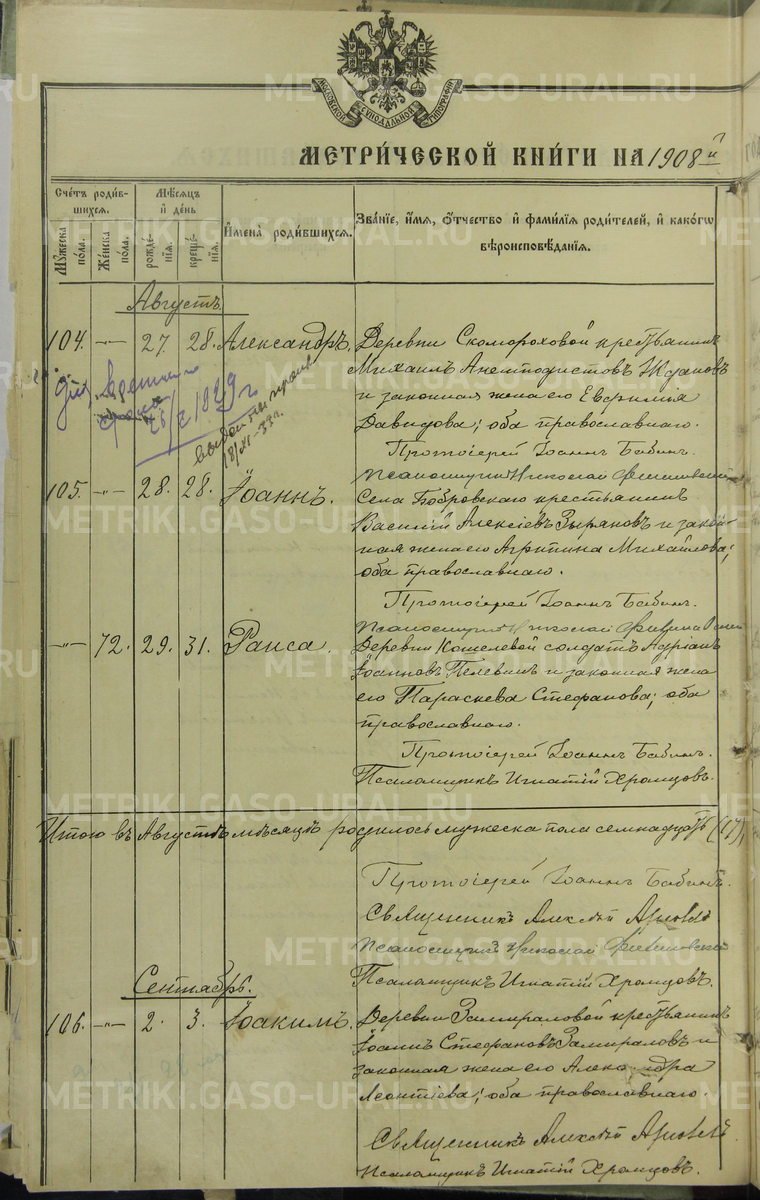 МОСКОВСКОЙ СѴНОДАЛЬНОЙ ТИПОГРАФІИ
МЕТРИ́ЧЕСКОЙ КНИ́ГИ НА 1908 й
Сче́тъ роди́в-
шихся.
Мѣ́сяцъ
и҆ де́нь
И҆мена̀ роди́вшихся.
Зва́нїе, и҆́мя, ѻ҆́тчество и҆ фами́лїя роди́телей, и҆ како́гѡ
вѣроисповѣ́данїя.
Мꙋ́жеска по́ла.
Же́нска по́ла.
рожде́нїя.
креще́нїя.
Августъ.
104. -"- 27. 28. Александръ.
Деревни Скомороховой крестьянинъ
Михаилъ Анемподистовъ Ждановъ
и законная жена его Евфимія
Давидова; оба православнаго.
Протоіерей Іоаннъ Бабинъ.
Псаломщикъ Николай
1929 г
18/XI-33г.
105. -"- 28. 28. Іоаннъ.
Села Бобровскаго крестьянинъ
Василій Алексіевъ Зыряновъ и закон-
ная жена его Агриппина Михайлова;
оба православнаго.
Протоіерей Іоаннъ Бабинъ.
Псаломщикъ Николай
-"- 72. 29. 31. Раиса.
Деревни Кошелевой солдатъ Адріанъ
Іоанновъ Пелевинъ и законная жена
его Параскева Стефанова; оба
православнаго.
Протоіерей Іоаннъ Бабинъ.
Псаломщикъ Игнатій Хромцовъ.
Итого въ Августѣ мѣсяцѣ родилось мужеска пола семнадцать (17),
Протоіерей Іоаннъ Бабинъ.
Священникъ Алексій
Псаломщикъ Николай
Псаломщикъ Игнатій Хромцовъ.
Сентябрь.
106. -"- 2. 3. Іоакимъ.
Деревни Замираловой крестьянинъ
Іоаннъ Стефановъ Замираловъ и
законная жена его Александра
Леонтіева; оба православнаго.
Священникъ Алексій
Псаломщикъ Игнатій Хромцовъ.
METRIKI.GASO-URAL.RU